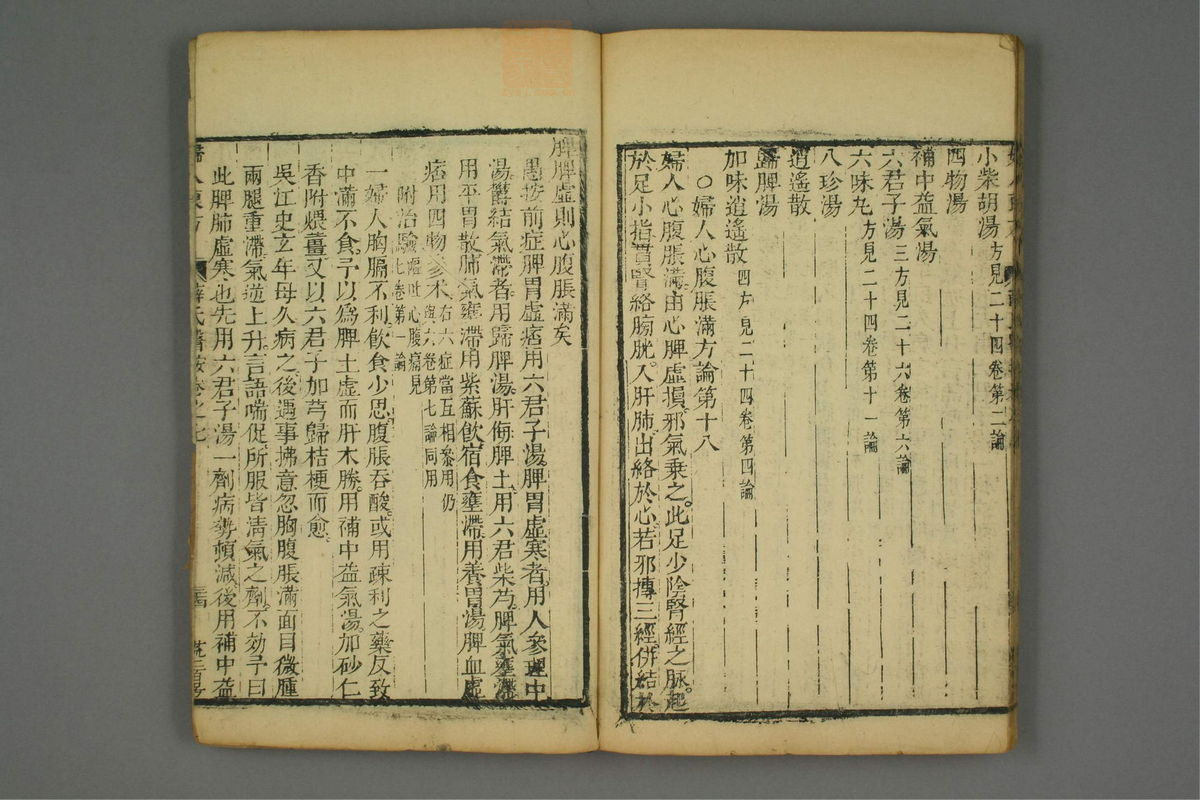 小柴胡湯方見二十四卷第二論
四物湯
補中益氣湯
六君子湯三方見二十六卷第六論
六味丸方見二十四卷第十一論
八珍湯
逍遙散
歸脾湯
加味逍遙散四方見二十四卷第四論
○婦人心腹脹滿方論第十八
婦人心腹脹滿由心脾虛損邪氣乗之此足少陰腎經之脉起
於足小指貫腎絡膀胱入肝肺出絡於心若邪摶三經併結於
脾脾虛則心腹脹滿矣
愚按前症脾胃虛痞用六君子湯脾胃虛寒者用人參理中
湯欝結氣滯者用歸脾湯肝侮脾土用六君柴芍脾氣壅滯
用平胃散肺氣壅滯用紫蘇飲宿食壅滯用養胃湯脾血虛
痞用四物參术右六症當互相叅用仍
與六卷第七論同用
附治驗嘔吐心腹痛見
七卷第一論
一婦人胸膈不利飲食少思腹脹吞酸或用疎利之藥反致
中滿不食予以為脾土虛而肝木勝用補中益氣湯加砂仁
香附煨薑又以六君子加芎歸桔梗而愈
吳江史玄年母久病之後遇事拂意忽胸腹脹滿面目微腫
兩腿重滯氣逆上升言語喘促所服皆淸氣之劑不効予曰
此脾肺虛寒也先用六君子湯一劑病勢頓減後用補中益
婦人良方
薛氏醫按卷之七